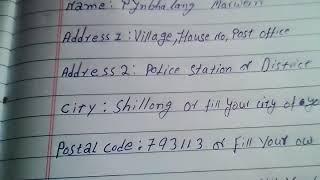 Name: Pynbhalang Marwein
Address 1: Village, House no, Post office
Address 2: Police station & District
City: Shillong or fill your city of
Postal code: 793113 or Fill Your ow